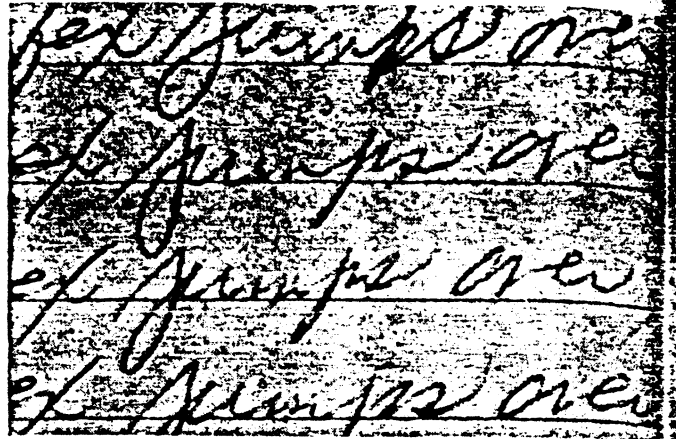 fox jumps over
ox jumps over
ox jumps over
ox jumps over